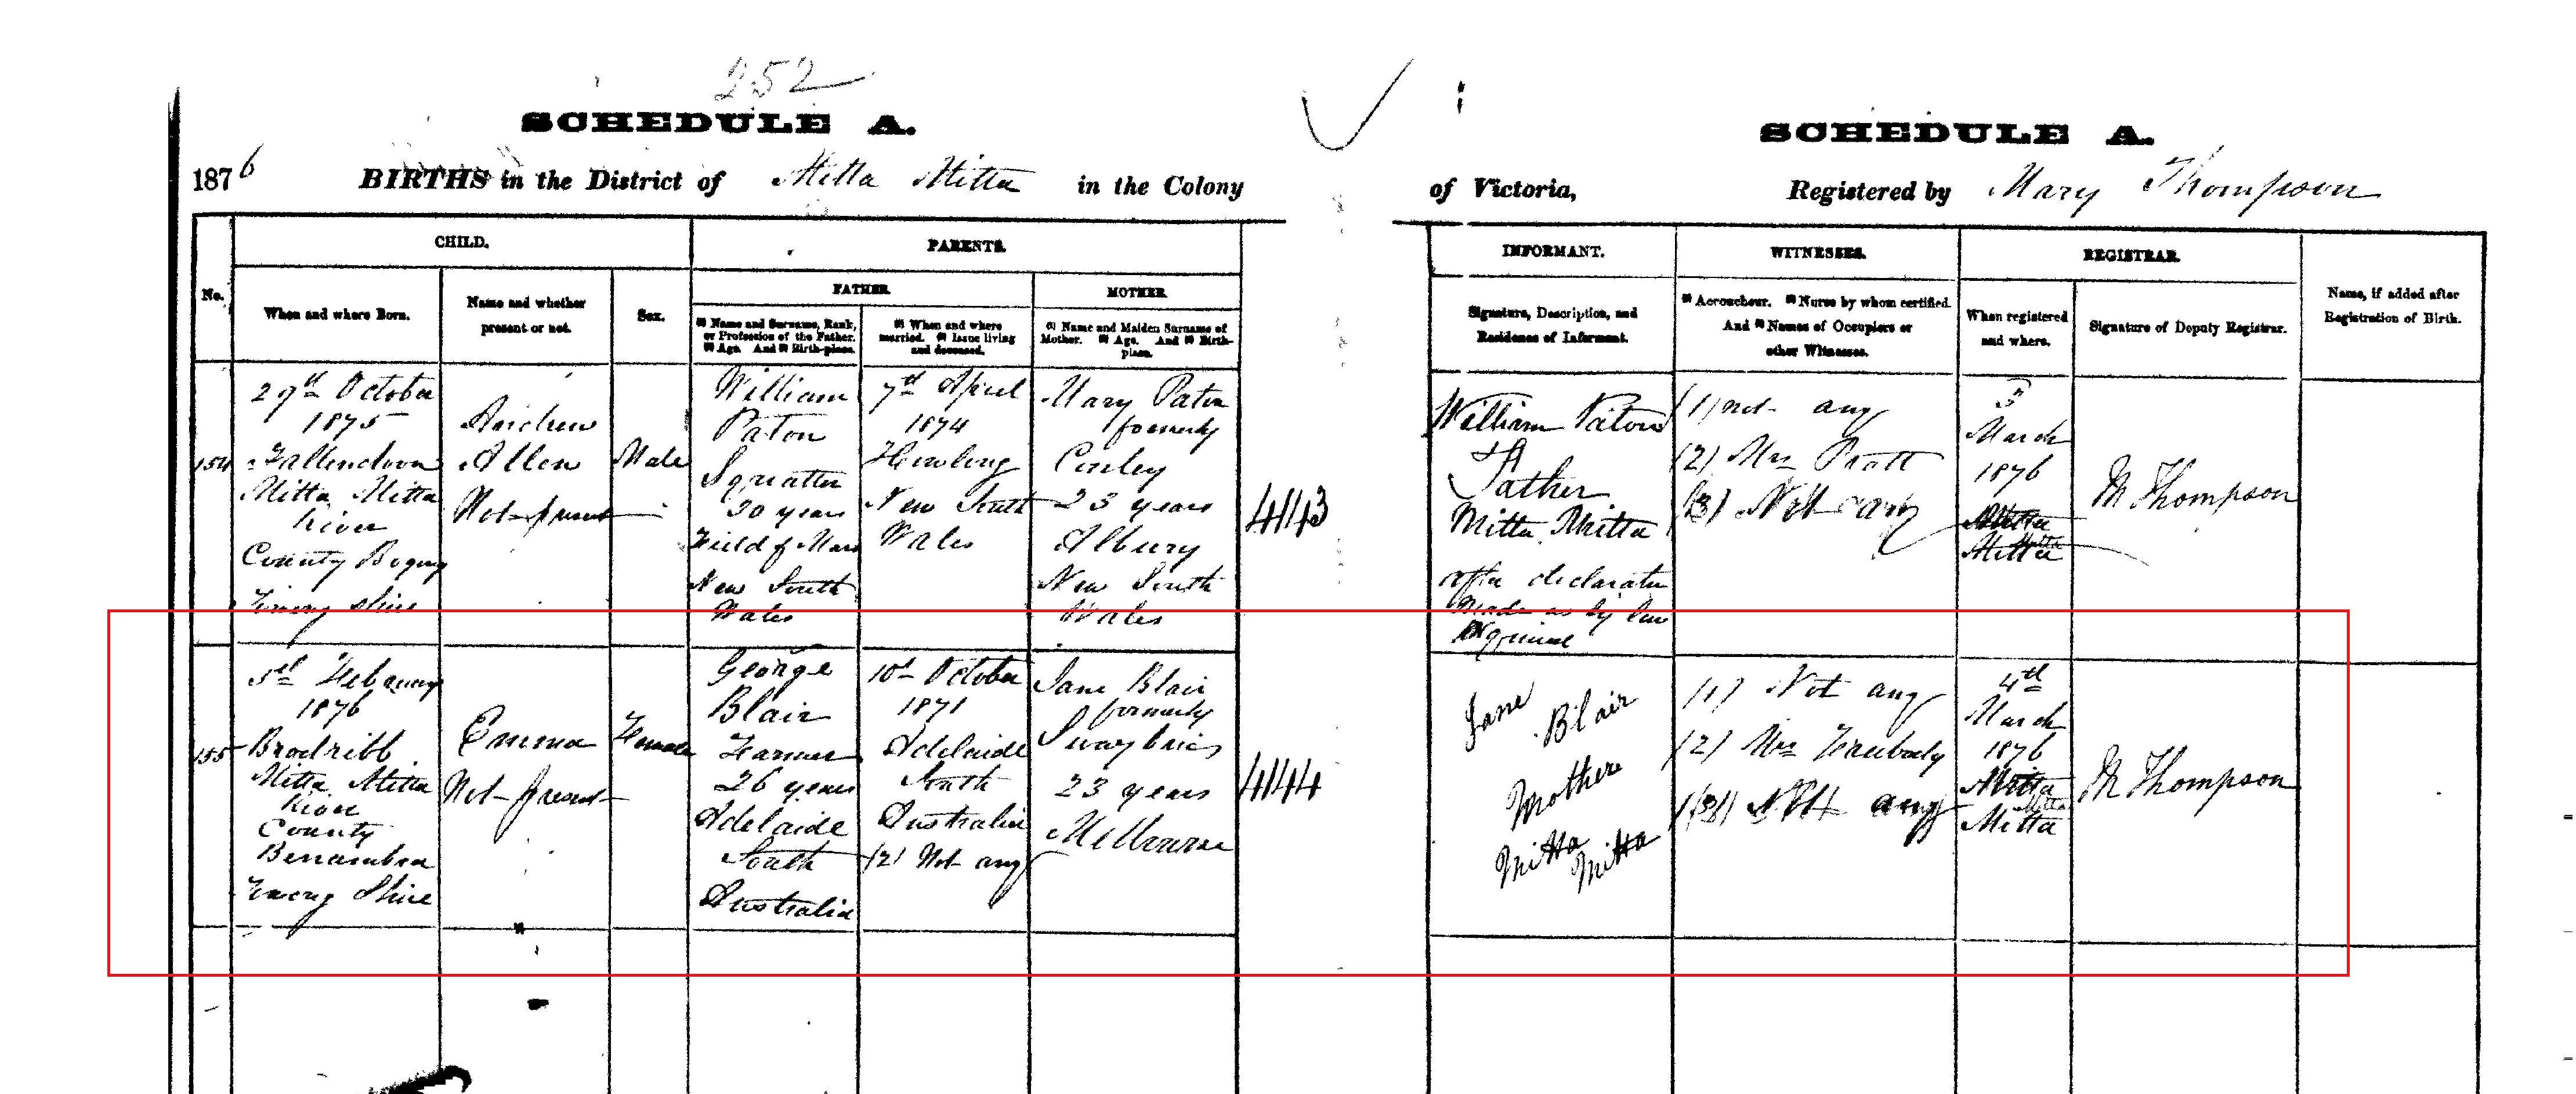 252
SCHEDULE A.
1876 BIRTHS in the District of Mitta Mitta in the Colony
No.
CHILD.
When and where Born.
Name and whether
present or not.
Sex.
PARENTS.
FATHER
(1) Name and Surname, Rank,
or Profession of the Father.
(2) Age. And (3) Birth-place.
(1) When and where
married. (2) Issue living
and deceased.
MOTHER
(1) Name and Maiden Surname of
Mother. (2) Age. And (3) Birth-
place.
154
29th October
1875
Tallandoon
Mitta Mitta
River
County Bogong
Towong Shire
Andrew
Allen
Not present
Male
William
Paton
Squatter
30 years
Field of Mars
New South
Wales
7th April
1874
New South
Wales
Mary Paton
formerly
23 years
Albury
New South
Wales
4143
155
5th Febauary
1876
Brodribb
Mitta Mitta
River
County
Benambra
Towong Shire
Emma
Not present
Female
George
Blair
Farmer
26 years
Adelaide
South
Australia
10th October
1871
Adelaide
South
Australia
(2) Not any
Jane Blair
formerly
23 years
Melbourne
4144
SCHEDULE A.
of Victoria, Registered by Mary Thompson
INFORMANT.
Signature, Description, and
Residence of Informant.
WITNESSES.
(1) Accoucheur. (2) Nurse by whom certified.
And (3) Names of Occupiers or
other Witnesses.
REGISTRAR.
When registered
and where.
Signature of Deputy Registrar.
Name, if added after
Registration of Birth.
William Paton
Father
Mitta Mitta
after declaration
made as by law
required
(1) not any
(2) Mrs Pratt
(3) Not any
3
March
1876
Mitta
Mitta
M Thompson
Jane Blair
Mother
Mitta Mitta
(1) Not any
(2) Mrs
(3) Not any
4th
March
1876
Mitta
Mitta
M Thompson